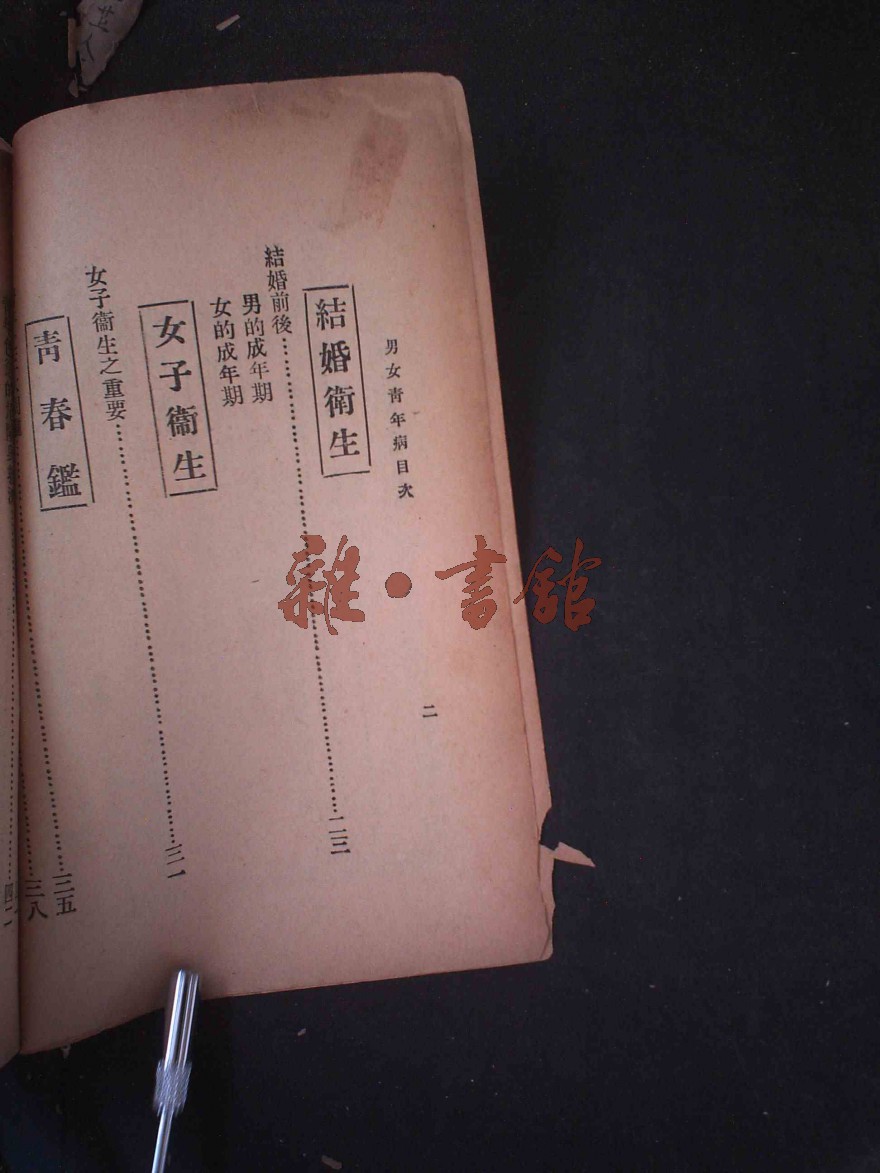 男女青年病目次
二
結婚衛生
結婚前後……二三
男的成年期
女的成年期
女子衞生
女子衞生之重要……三一
青春鑑
三五
三八
四二
雜·書館